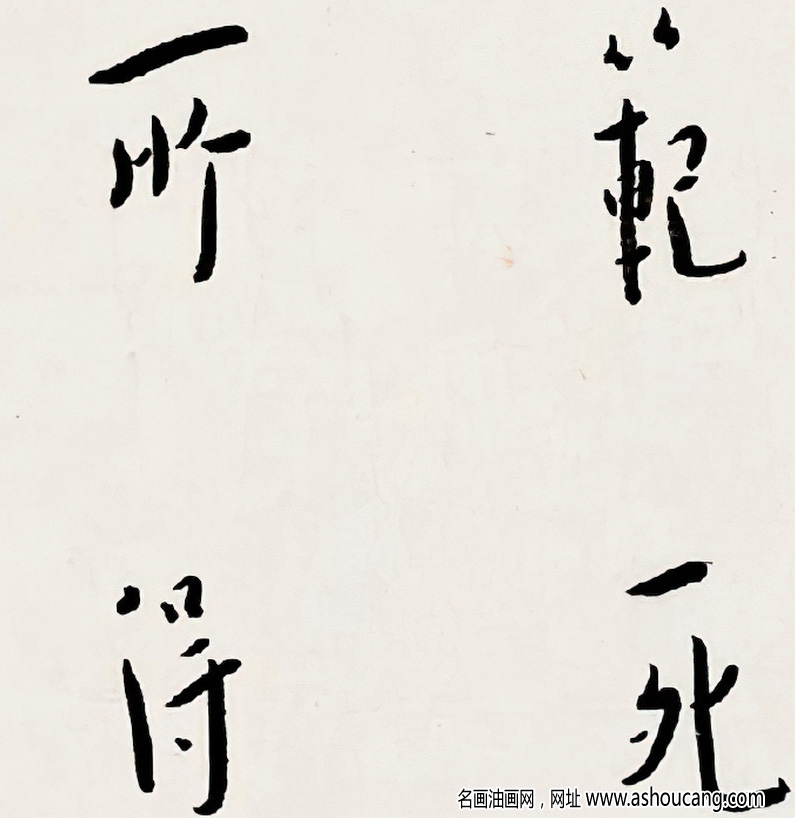 範死
所得
名画油画网，网址 www.ashoucang.com